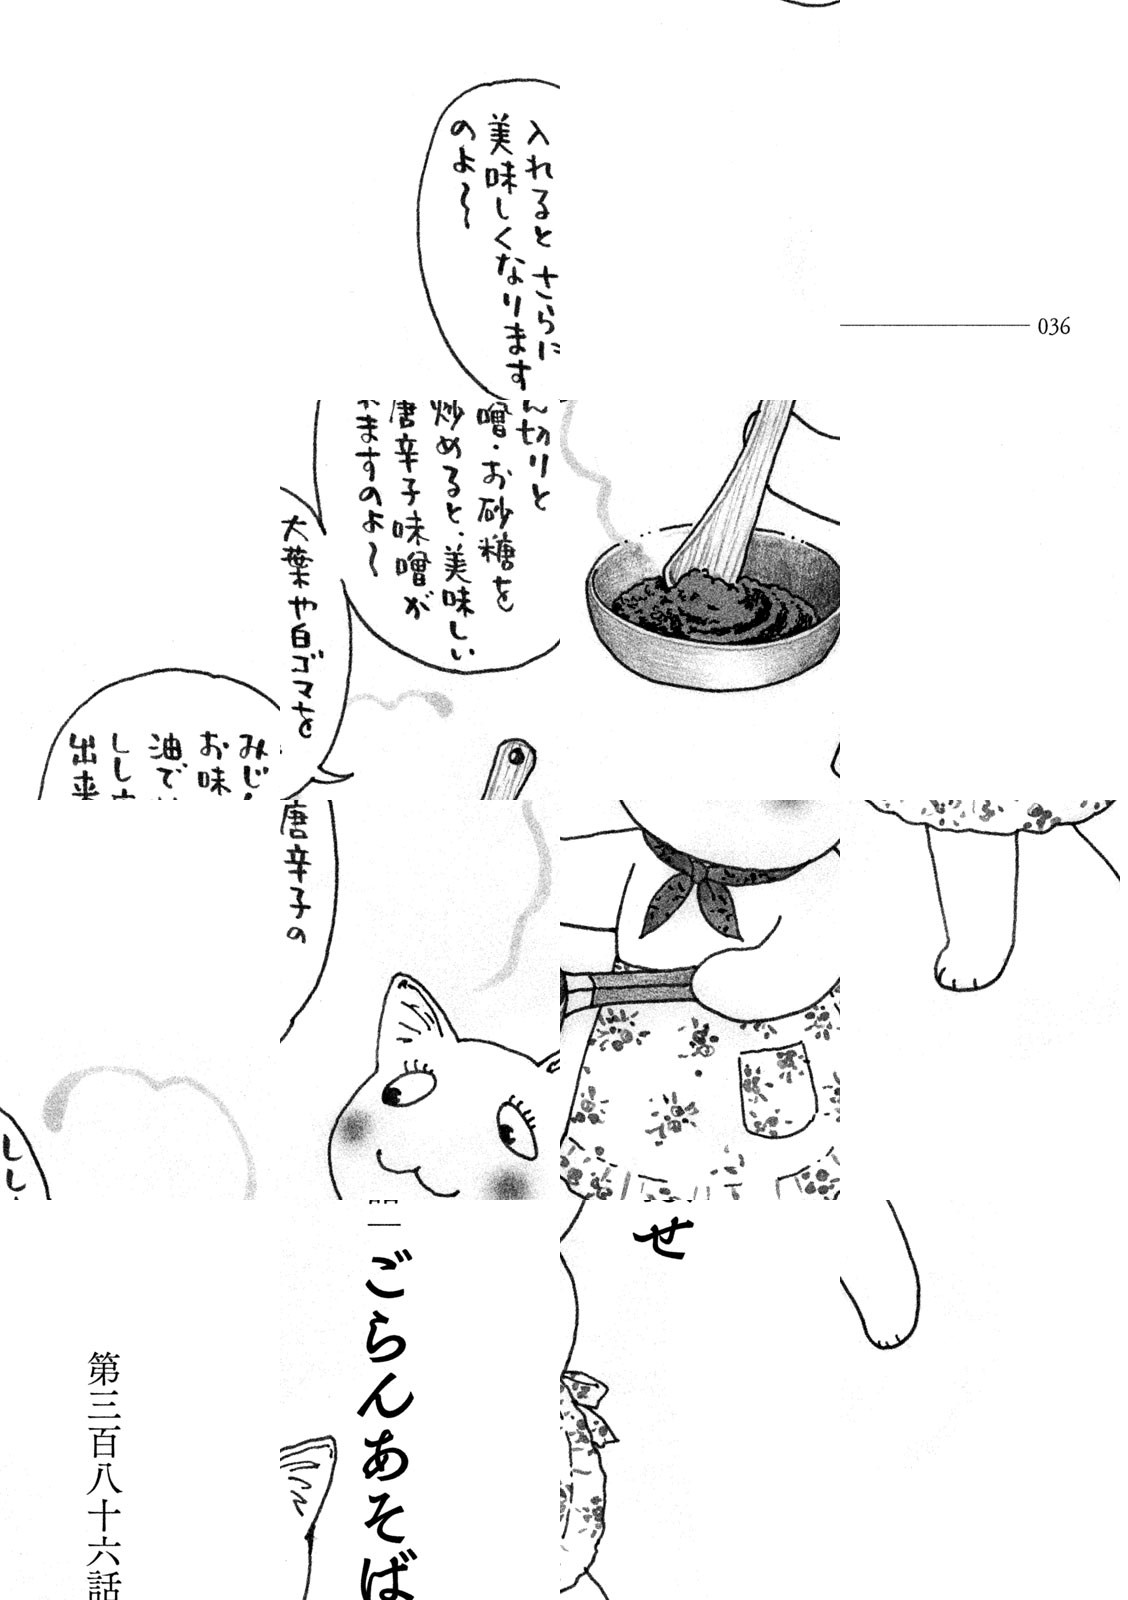 入れると さらに
美味しくなります
のよ〜
036
ん切りと
噌・お砂糖を
炒めると、美味しい
唐辛子味噌が
ますのよ〜
大葉や白ゴマを
みじ
お味
油で
しし
出来
唐辛子の
しし
せ
ごらんあそば
第三百八十六話